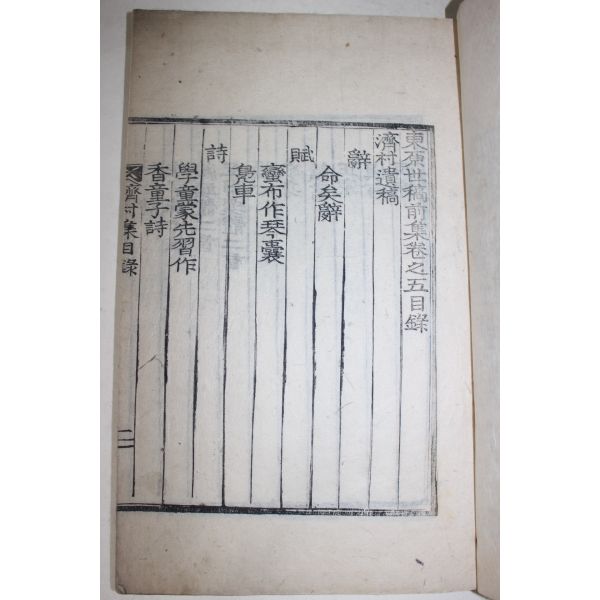 東煥世稿前集卷之五目錄
濟村遺稿
辭
命矣辭
賦
蠻布作琴囊
凫車
詩
學童蒙先習作
香童子詩
濟村集目錄 二